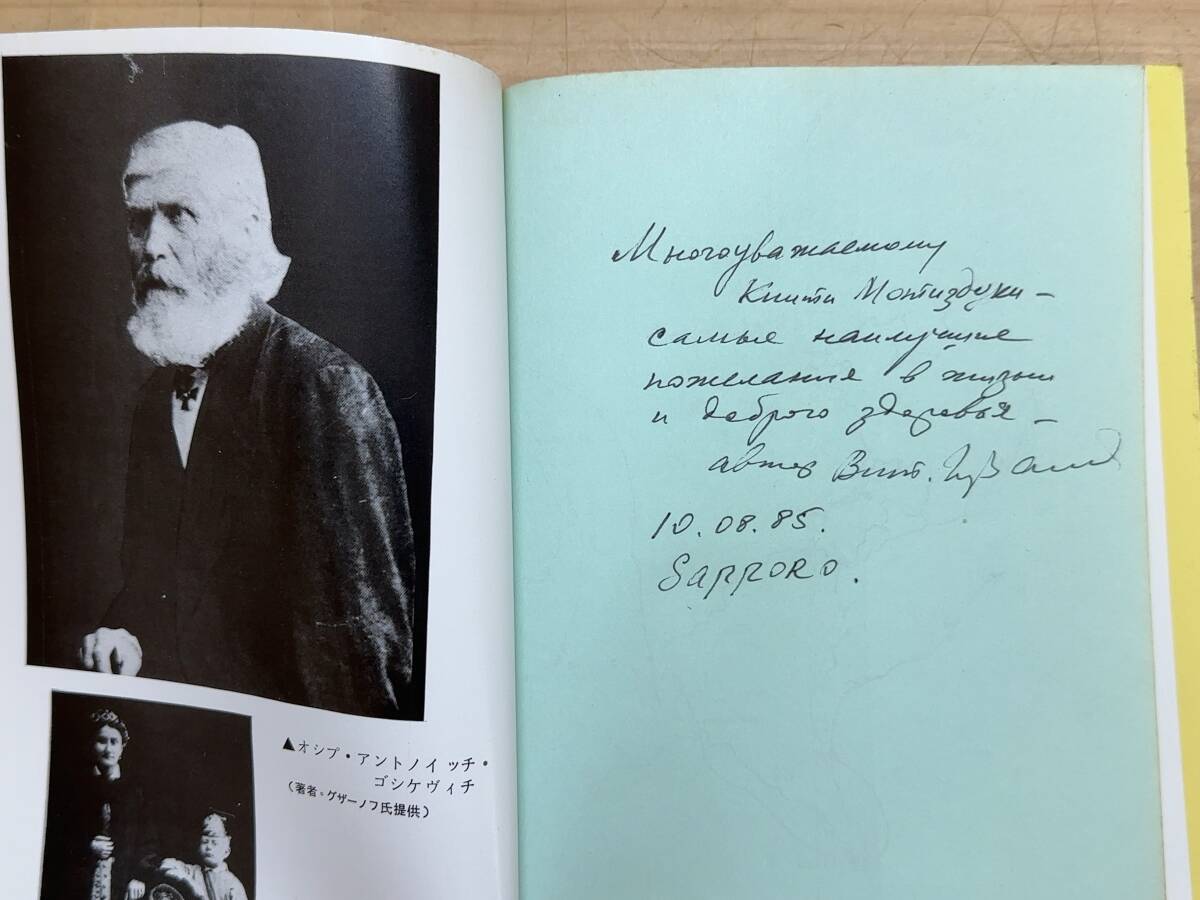 ▲オシプ・アントノイッチ・
ゴシケヴィチ
(著者・ゲザーノフ氏提供)
Многоуважаемому
Киити Мотидзуки –
самые наилучшие
пожелания в жизни
и доброго здоровья –
автор Вит. Гузанов
10.08.85.
Sapporo.